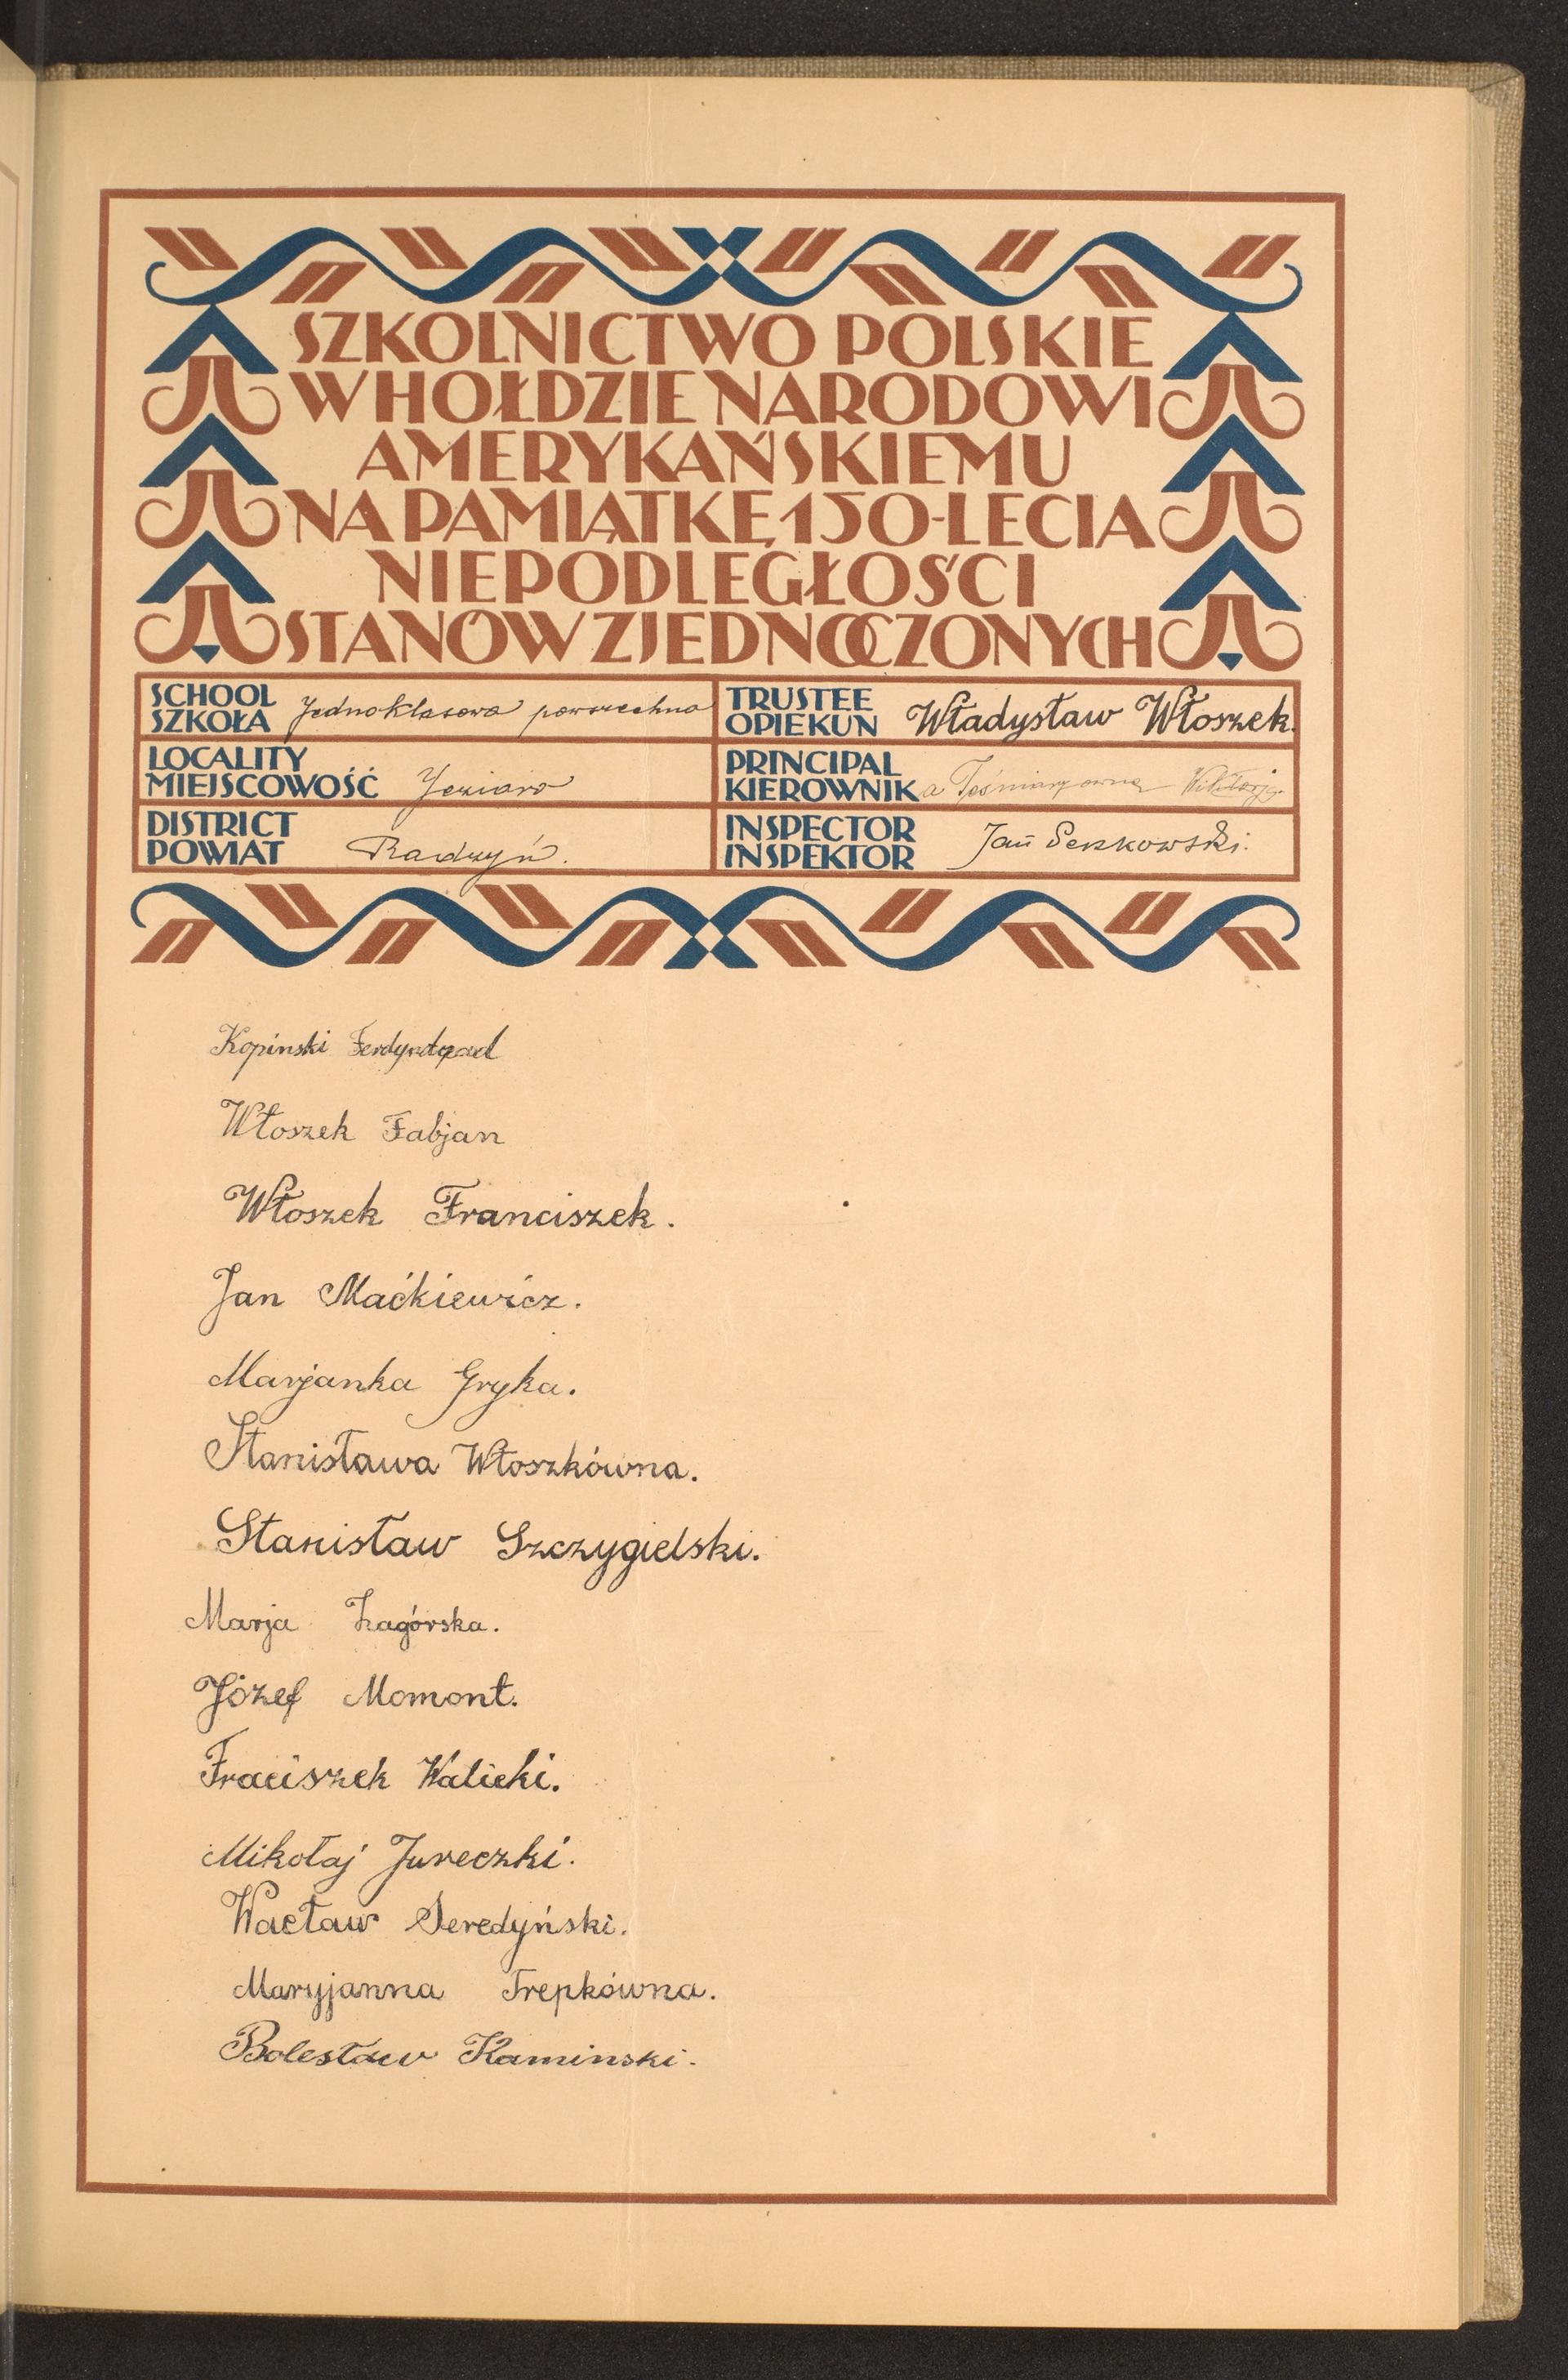 SZKOLNICTWO POLSKIE
W HOŁDZIE NARODOWI
AMERYKAŃSKIEMU
NA PAMIĄTKĘ 150-LECIA
NIEPODLEGŁOŚCI
STANÓW ZJEDNOCZONYCH
SCHOOL
SZKOŁA Jednoklasowa powszechna
TRUSTEE
OPIEKUN Władysław Włoszek.
LOCALITY
MIEJSCOWOŚĆ Jezioro
PRINCIPAL
KIEROWNIK a Wiktorja
DISTRICT
POWIAT Radzyń.
INSPECTOR
INSPEKTOR Jan
Kopinski Ferdynand
Włoszek Fabjan
Włoszek Franciszek.
Jan Maćkiewicz.
Marjanka Gryka.
Stanisława Włoszkówna.
Stanisław Szczygielski.
Marja Zagórska.
Józef Momont.
Fraciszek Walicki.
Mikołaj Jureczki.
Wacław Seredyński.
Maryjanna Trepkówna.
Bolesław Kaminski.